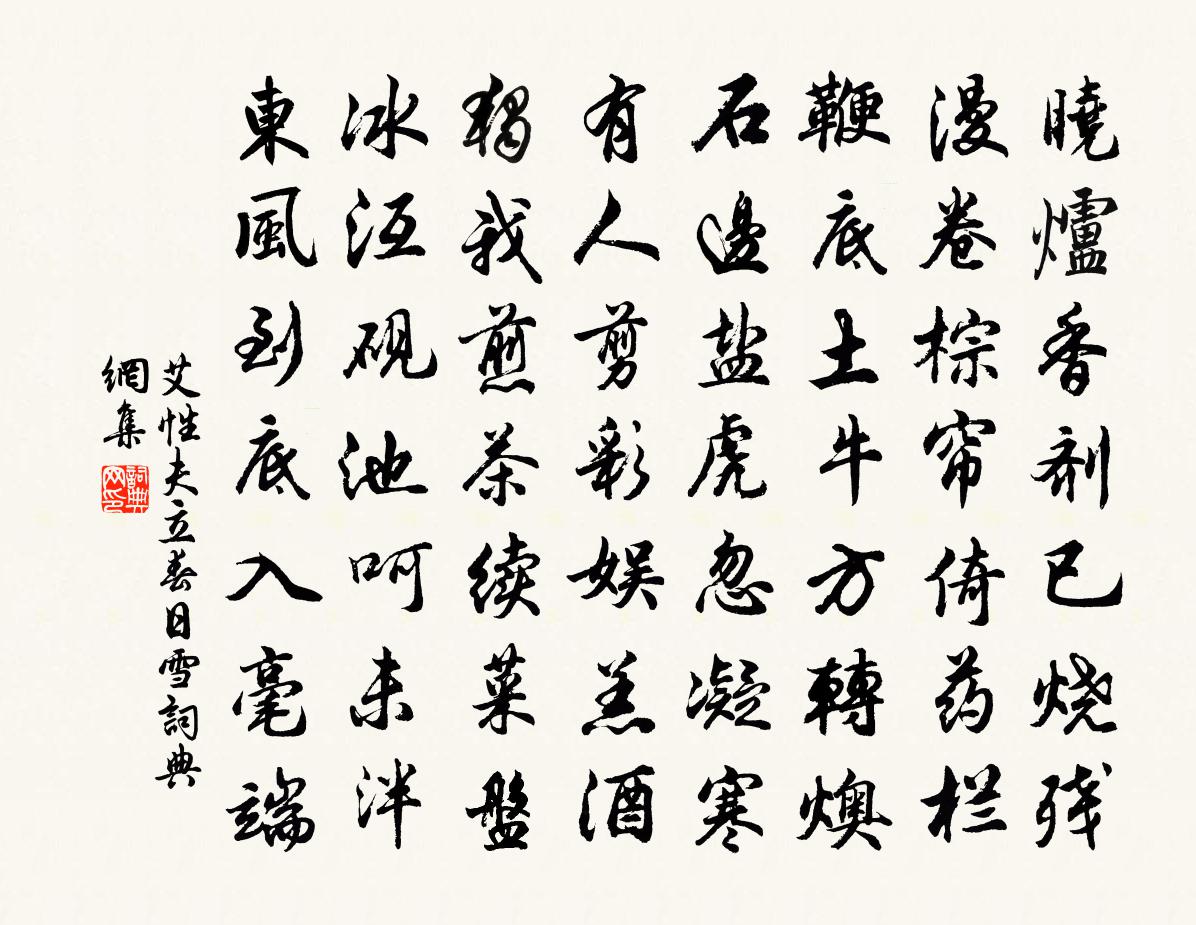 曉爐香剂已烧残
漫卷棕帘倚药栏
鞭底土牛方轉燠
石邊盐虎忽凝寒
有人剪彩娱羔酒
獨我煎茶续菜盤
冰沍砚池呵未泮
東風到底入毫端
艾性夫立春日雪詞典
網集
詞典
网印